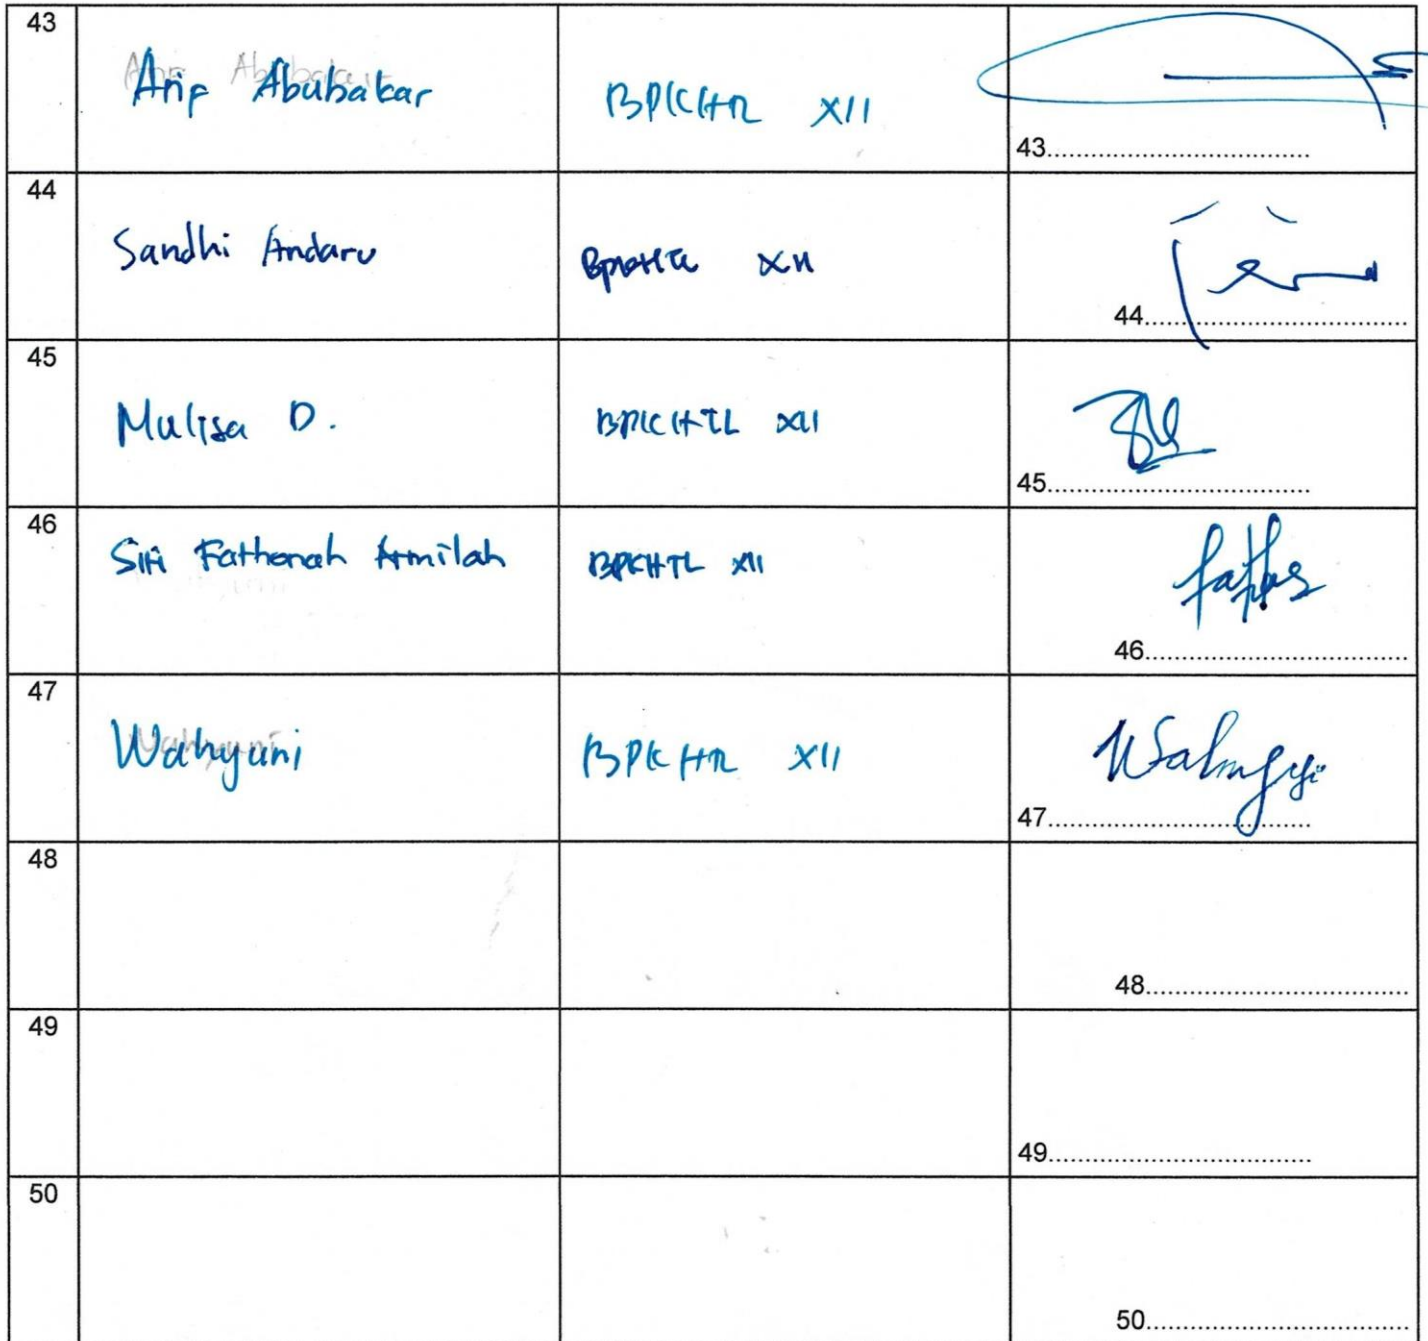 43 Arif Abubakar BPKHTL XII 43..............................
44 Sandhi Andaru BPKHTL XII 44..............................
45 Mulisa D. BPKHTL XII 45..............................
46 Siti Fathonah Armilah BPKHTL XII 46..............................
47 Wahyuni BPKHTL XII 47..............................
48 48..............................
49 49..............................
50 50..............................